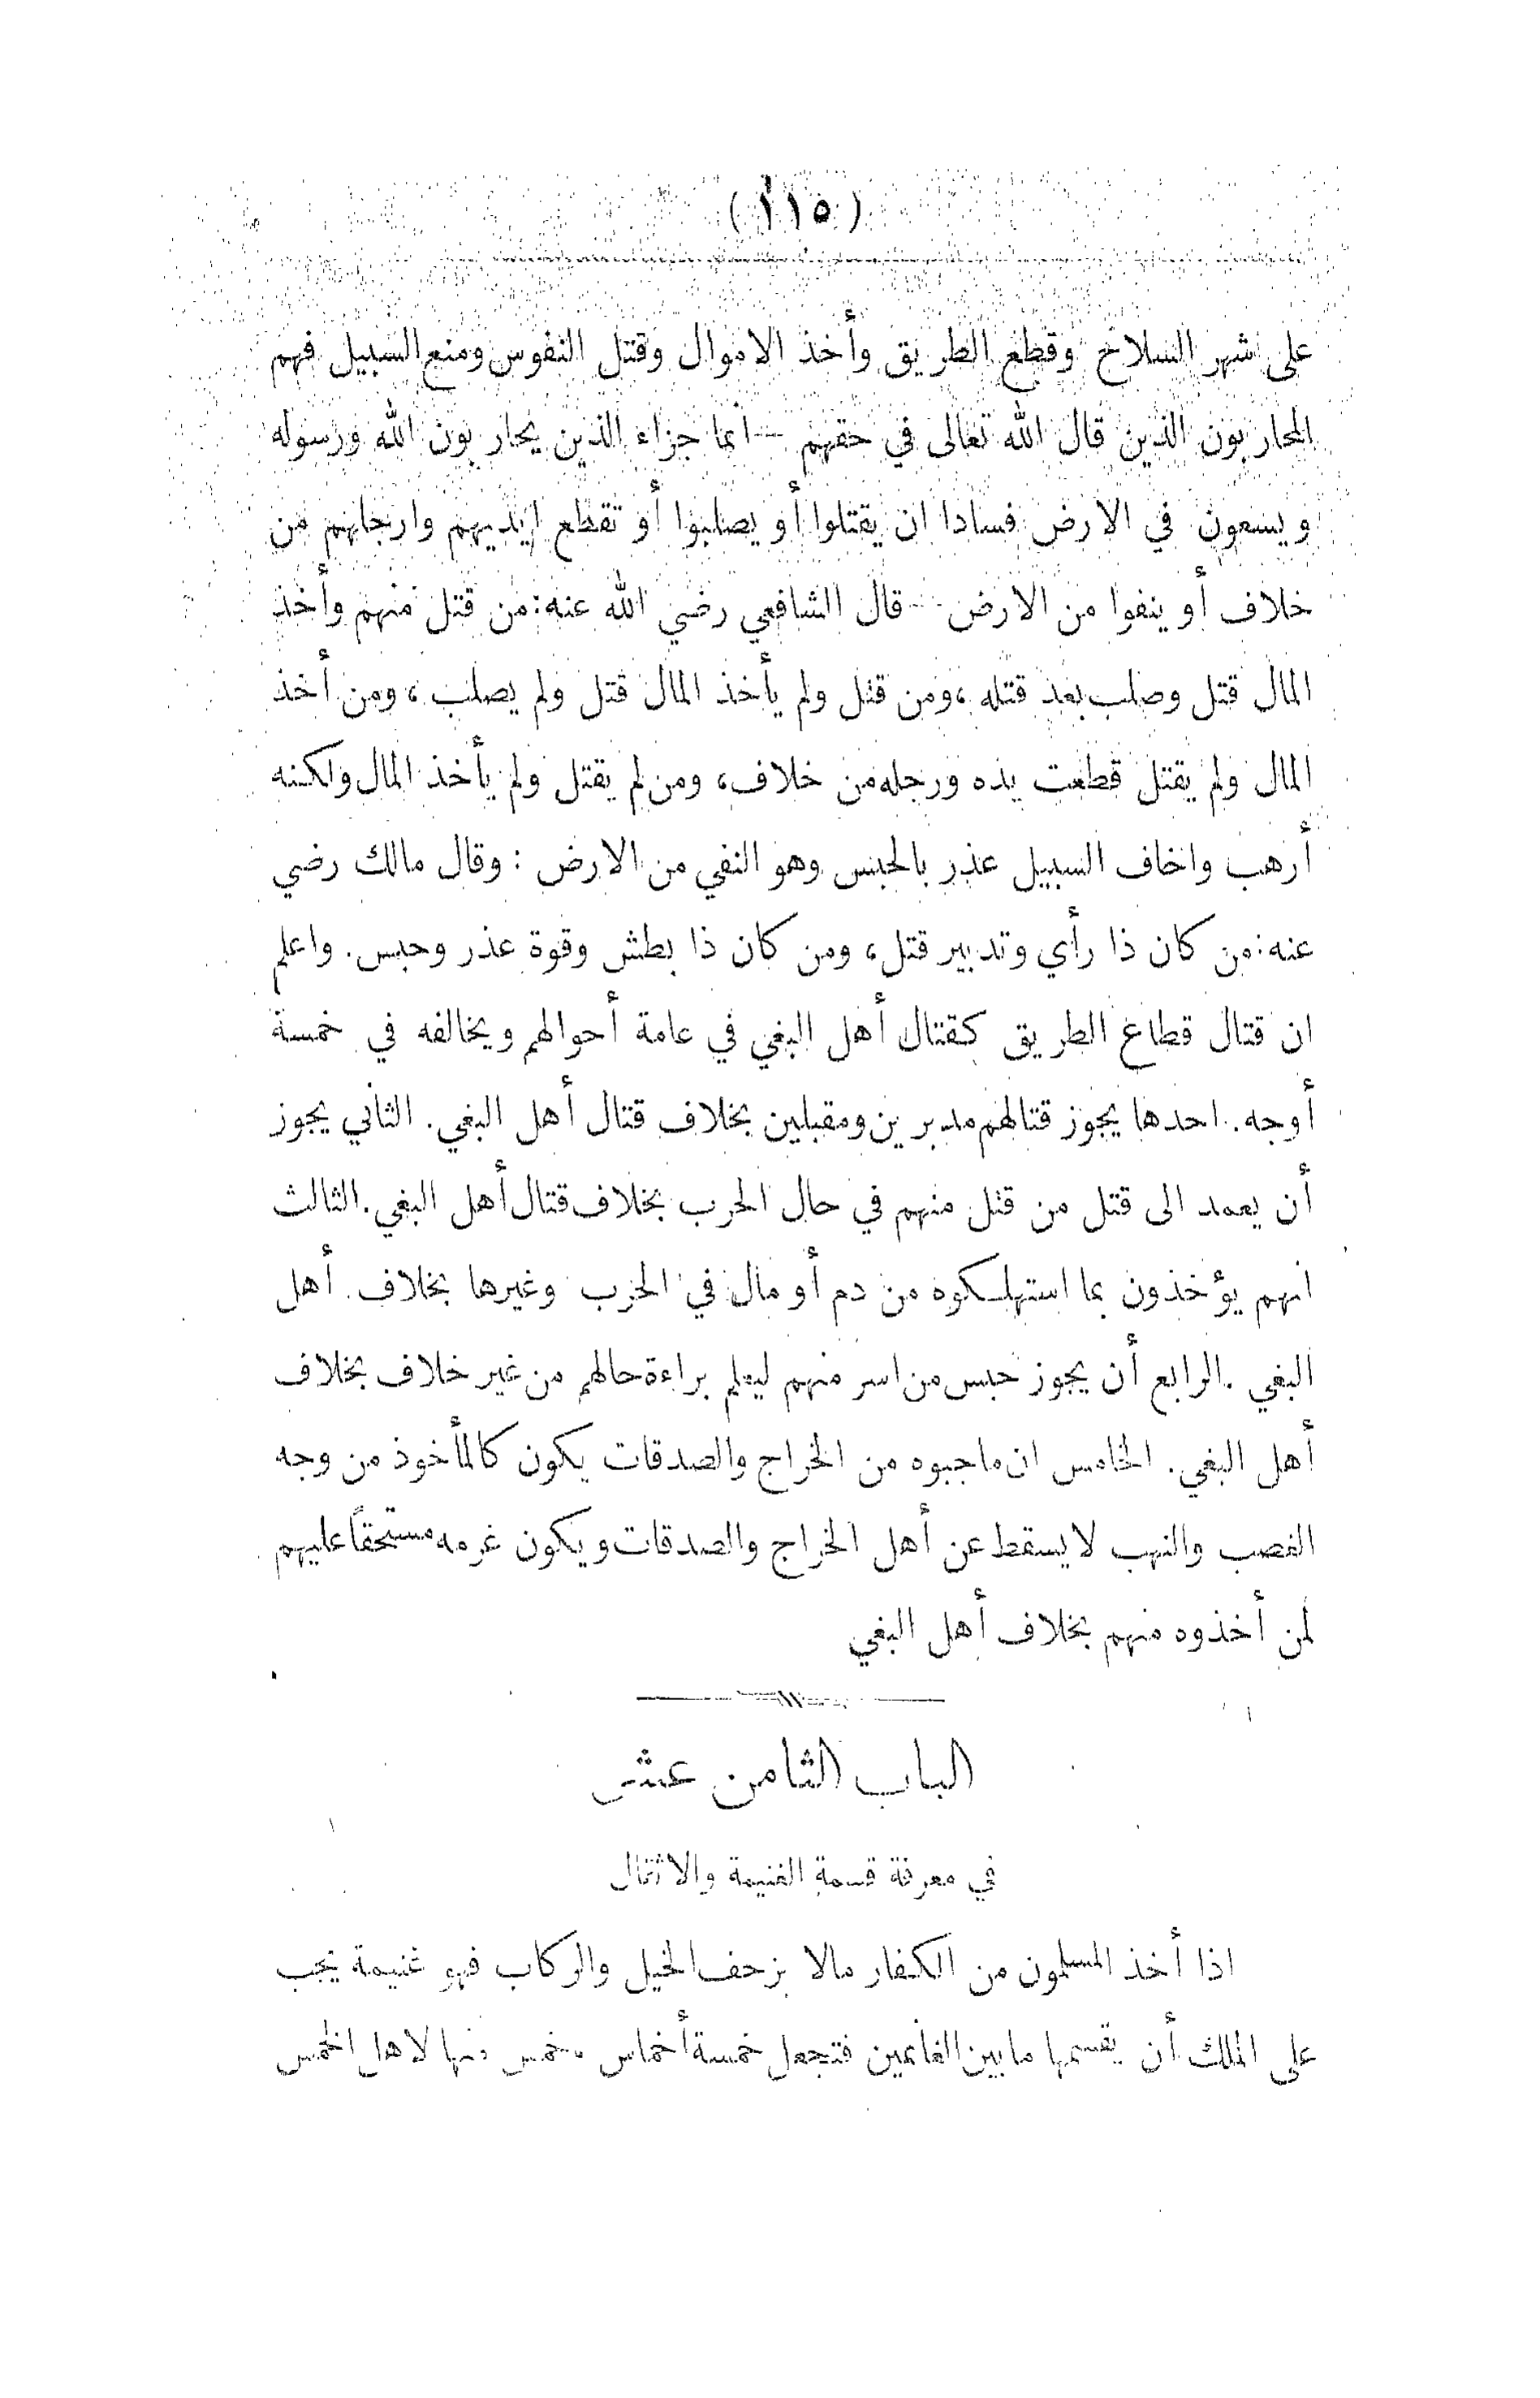 (١١٥)
على اشهر السلاح وقطع الطريق وأخذ الاموال وقتل النفوس ومنع السبيل فهم
المحاربون الذين قال الله تعالى في حقهم — انما جزاء الذين يحاربون الله ورسوله
ويسعون في الارض فسادا ان يقتلوا أو يصلبوا أو تقطع ايديهم وارجلهم من
خلاف أو ينفوا من الارض — قال الشافعي رضي الله عنه: من قتل منهم وأخذ
المال قتل وصلب بعد قتله، ومن قتل ولم يأخذ المال قتل ولم يصلب، ومن أخذ
المال ولم يقتل قطعت يده ورجله من خلاف، ومن لم يقتل ولم يأخذ المال ولكنه
أرهب واخاف السبيل عذر بالحبس وهو النفي من الارض : وقال مالك رضي
عنه: من كان ذا رأي وتدبير قتل، ومن كان ذا بطش وقوة عذر وحبس. واعلم
ان قتال قطاع الطريق كقتال أهل البغي في عامة أحوالهم ويخالفه في خمسة
أوجه. احدها يجوز قتالهم مدبرين ومقبلين بخلاف قتال أهل البغي. الثاني يجوز
أن يعمد الى قتل من قتل منهم في حال الحرب بخلاف قتال أهل البغي. الثالث
انهم يؤخذون بما استهلكوه من دم أو مال في الحرب وغيرها بخلاف أهل
البغي. الرابع أن يجوز حبس من اسر منهم ليعلم براءة حالهم من غير خلاف بخلاف
أهل البغي. الخامس ان ما جبوه من الخراج والصدقات يكون كالمأخوذ من وجه
الغصب والنهب لا يسقط عن أهل الخراج والصدقات ويكون غرمه مستحقاً عليهم
لمن أخذوه منهم بخلاف أهل البغي
الباب الثامن عشر
في معرفة قسمة الغنيمة والا
اذا أخذ المسلمون من الكفار مالا بزحف الخيل والركاب فهو غنيمة يجب
على الملك أن يقسمها ما بين الغانمين فتجعل خمسة أخماس خمس منها لاهل الخمس